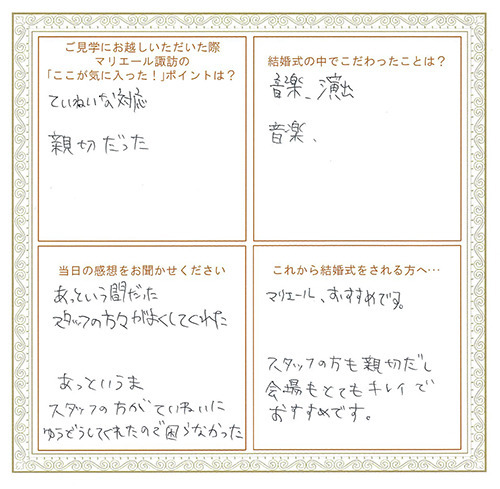 ご見学にお越しいただいた際
マリエール諏訪の
「ここが気に入った!」ポイントは?
ていねいな対応
親切だった
結婚式の中でこだわったことは?
音楽、演出
音楽、
当日の感想をお聞かせください
あっという間だった
スタッフの方々がよくしてくれた
あっというま
スタッフの方がていねいに
ゆうどうしてくれたので困らなかった
これから結婚式をされる方へ…
マリエール、おすすめです。
スタッフの方も親切だし
会場もとてもキレイで
おすすめです。